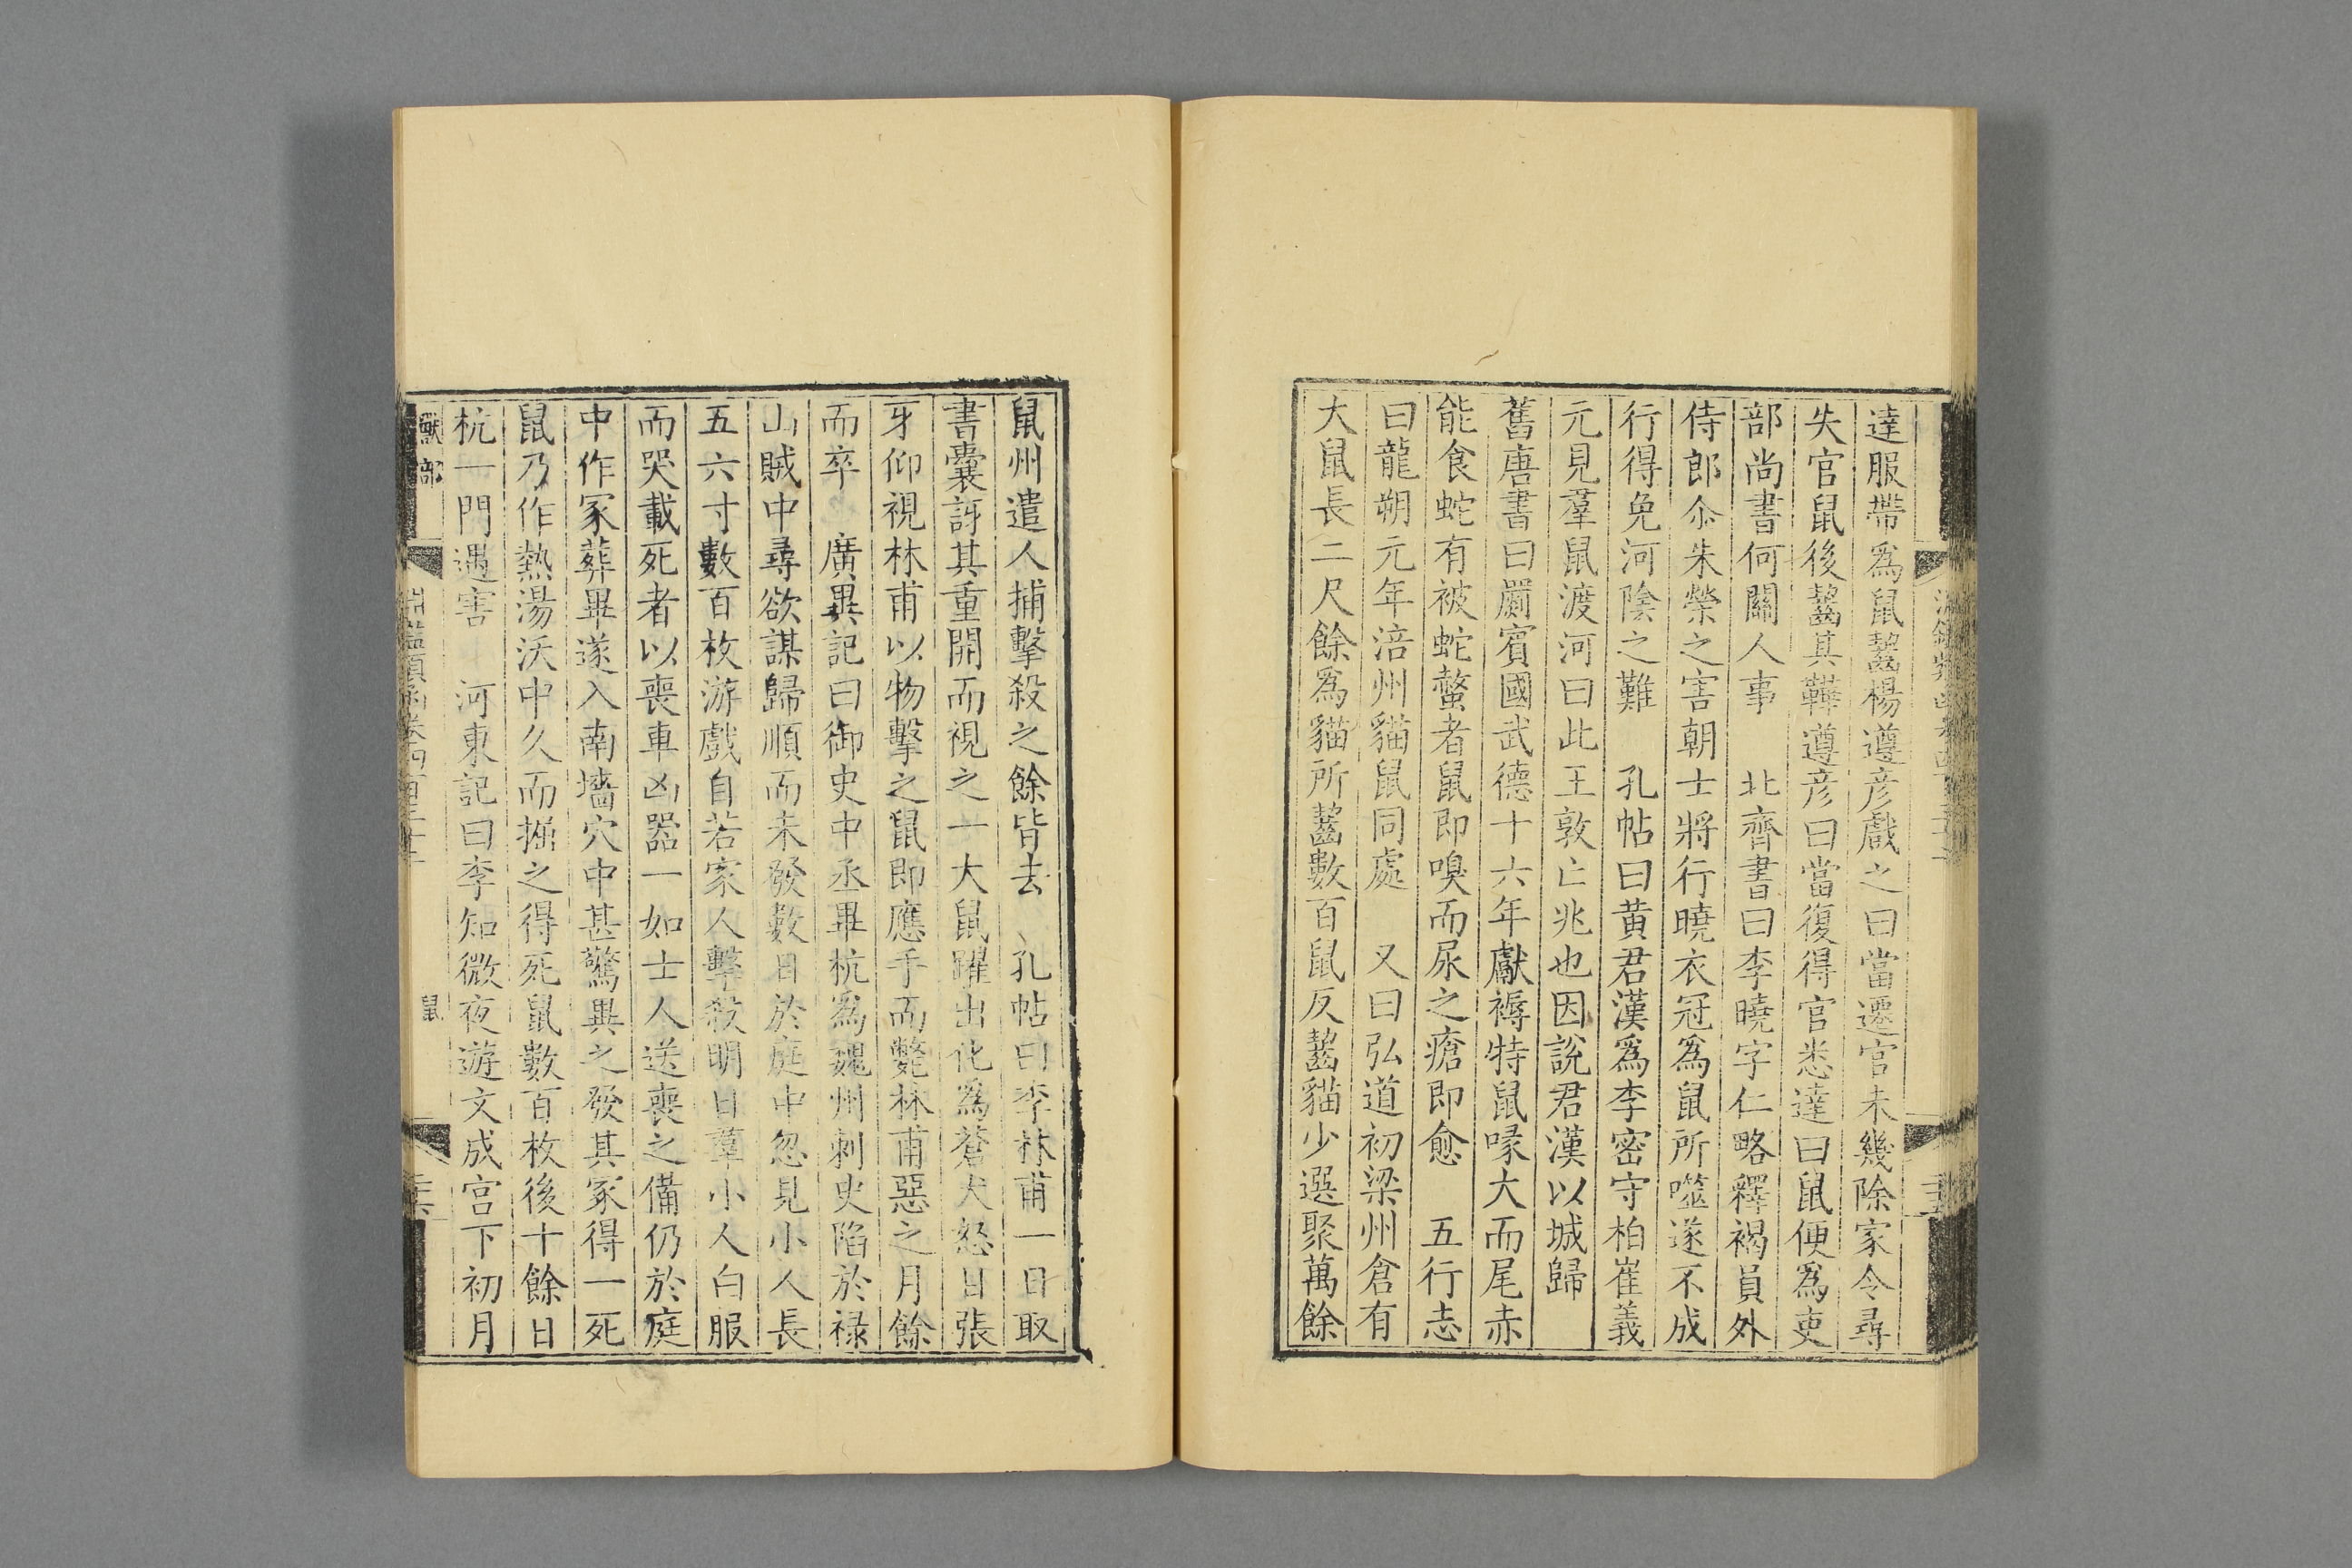 達服帶爲鼠齧楊遵彥戲之曰當遷官未幾除家令尋
失官鼠後齧其鞾遵彥曰當復得官悉達曰鼠便爲吏
部尚書何關人事　北齊書曰李曉字仁略釋褐員外
侍郎尒朱榮之害朝士將行曉衣冠爲鼠所噬遂不成
行得免河陰之難　孔帖曰黄君漢爲李密守柏崔義
元見羣鼠渡河曰此王敦亡兆也因說君漢以城歸
舊唐書曰罽賓國武德十六年獻褥特鼠喙大而尾赤
能食蛇有被蛇螫者鼠即嗅而尿之瘡即愈　五行志
曰龍朔元年涪州貓鼠同處　又曰弘道初梁州倉有
大鼠長二尺餘爲貓所齧數百鼠反齧貓少選聚萬餘
鼠州遣人捕擊殺之餘皆去　孔帖曰李林甫一日取
書囊訝其重開而視之一大鼠躍出化爲蒼犬怒目張
牙仰視林甫以物擊之鼠即應手而斃林甫惡之月餘
而卒　廣異記曰御史中丞畢杭爲魏州刺史陷於禄
山賊中尋欲謀歸順而未發數日於庭中忽見小人長
五六寸數百枚游戲自若家人擊殺明日羣小人白服
而哭載死者以喪車凶器一如士人送喪之備仍於庭
中作冢葬畢遂入南墻穴中甚驚異之發其冢得一死
鼠乃作熱湯沃中久而掘之得死鼠數百枚後十餘日
杭一門遇害　河東記曰李知微夜遊文成宮下初月
獸部
鼠